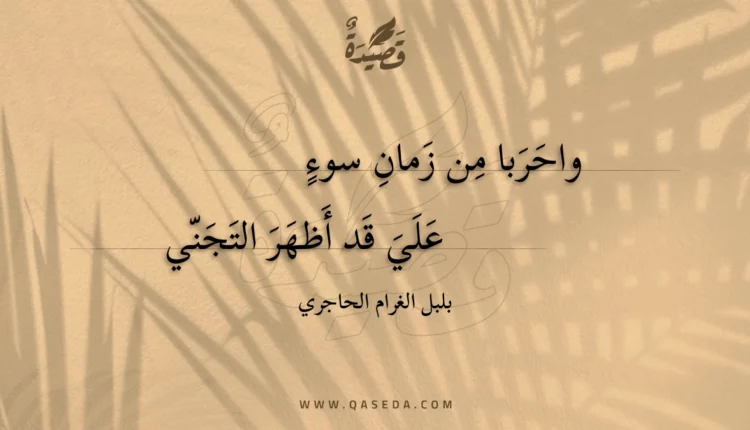 قَصِيْدَةٌ
واحَرَبا مِن زَمانِ سوءٍ
عَلَيَ قَد أَظهَرَ التَجَنّي
بلبل الغرام الحاجري
WWW.QASEDA.COM